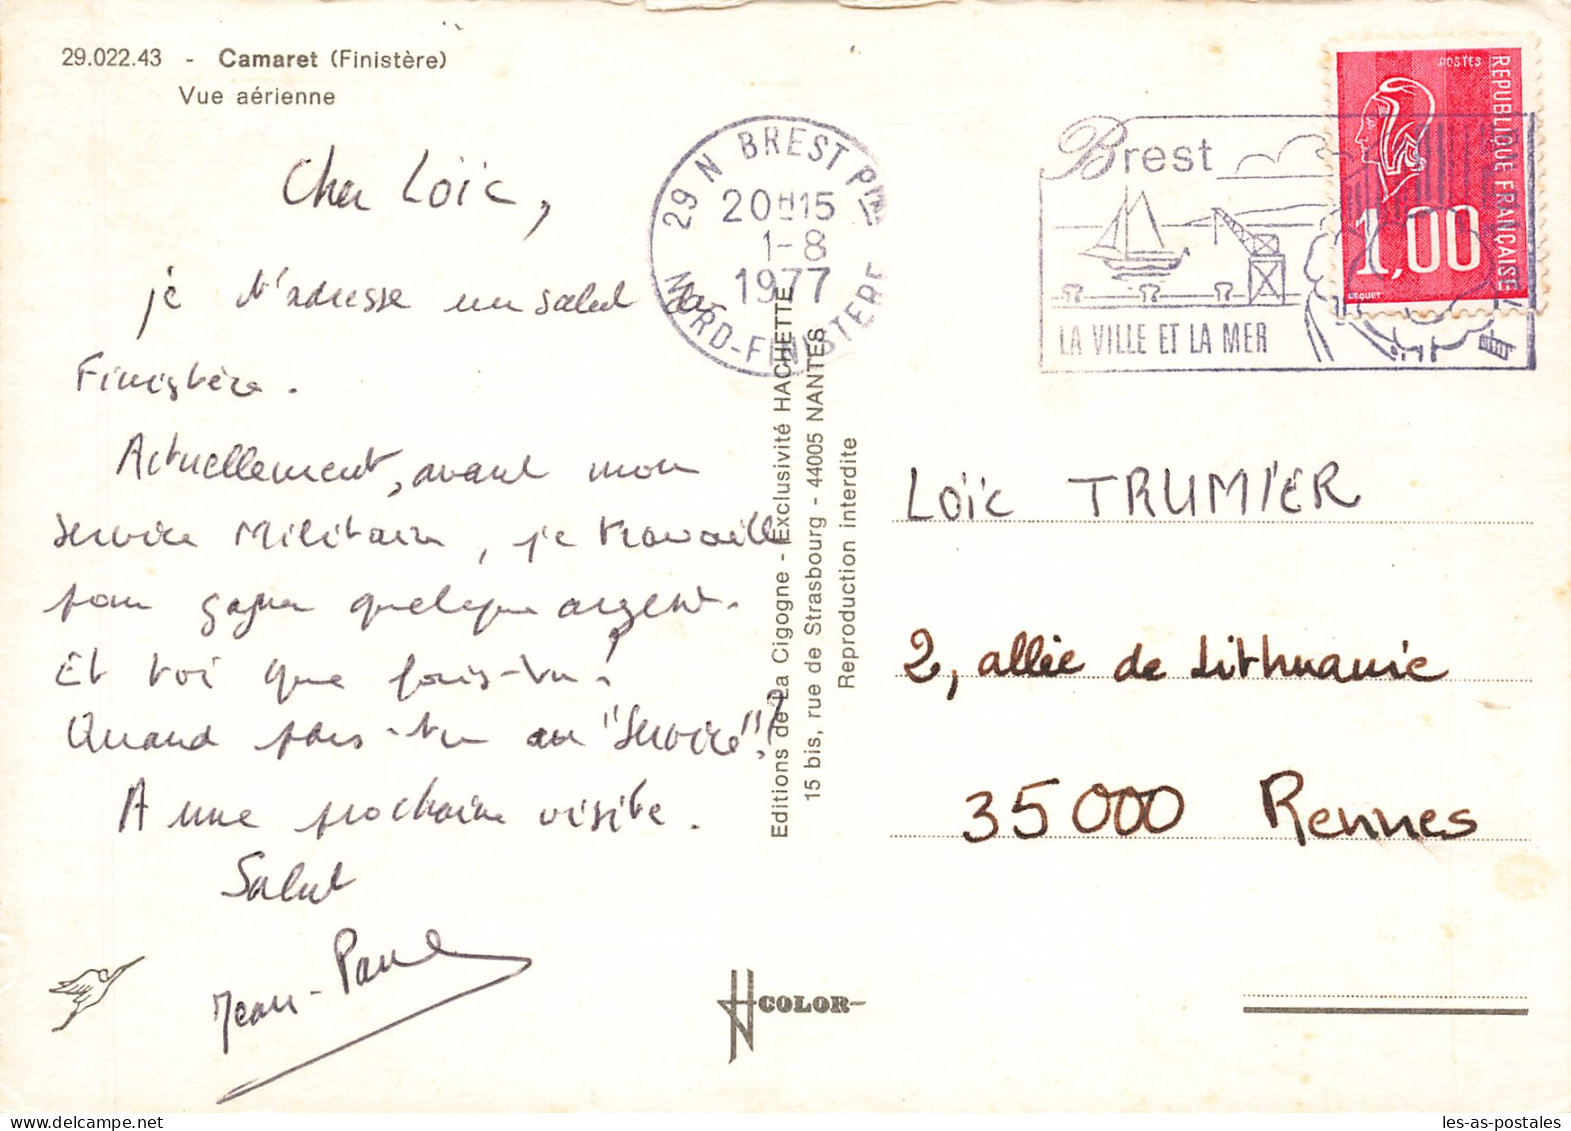 29.022.43 - Camaret (Finistère)
Vue aérienne
Cher Loïc,
je t'adresse un salut du
Finistère.
Actuellement, avant mon
Service Militaire, je travaille
pour gagner quelque argent.
Et toi que fais-tu?
Quand pars-tu au "Service"?
A une prochaine visite.
Salut
Jean-Paul
29 N BREST Pal
20H15
1-8
1977
NORD-FINISTERE
Brest
LA VILLE ET LA MER
POSTES
REPUBLIQUE FRANÇAISE
1,00
BEQUET
Editions de La Cigogne - Exclusivité HACHETTE
15 bis, rue de Strasbourg - 44005 NANTES
Reproduction interdite
Loïc TRUMIER
2, allée de Lithuanie
35000 Rennes
COLOR
les-as-postales